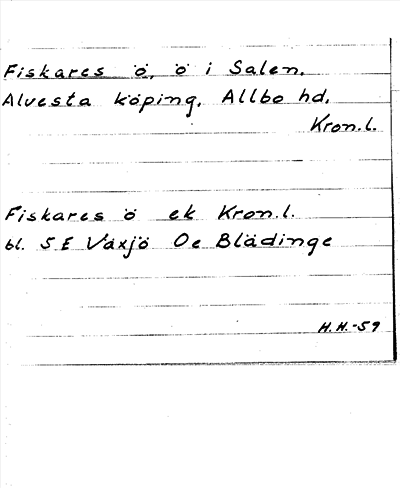 Fiskares ö, ö i Salen,
Alvesta köping, Allbo hd,
Kron.l.
Fiskares ö ek Kron.l.
bl. 5 E Växjö Oe Blädinge
H.H.-59